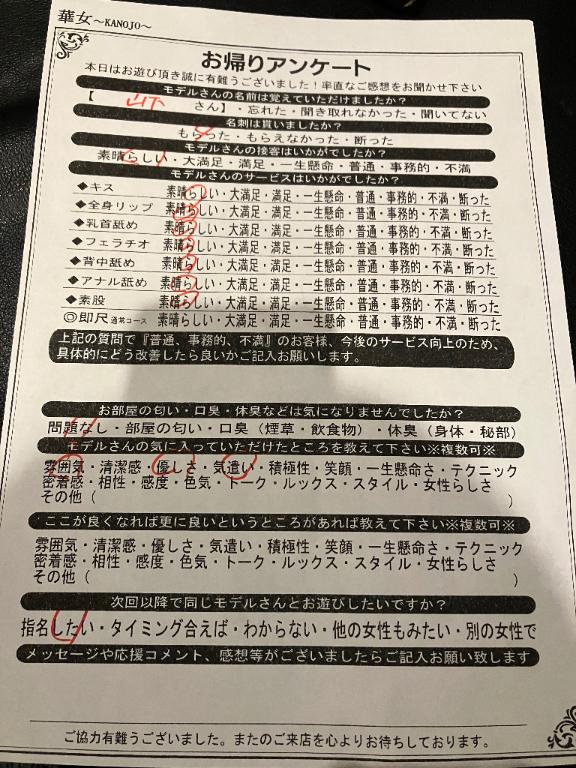 華女～KANOJO～
お帰りアンケート
本日はお遊び頂き誠に有難うございました！率直なご感想をお聞かせ下さい
モデルさんの名前は覚えていただけましたか？
【 山下 さん】・忘れた・聞き取れなかった・聞いてない
名刺は貰いましたか？
もらった・もらえなかった・断った
モデルさんの接客はいかがでしたか？
素晴らしい・大満足・満足・一生懸命・普通・事務的・不満
モデルさんのサービスはいかがでしたか？
◆キス 素晴らしい・大満足・満足・一生懸命・普通・事務的・不満・断った
◆全身リップ 素晴らしい・大満足・満足・一生懸命・普通・事務的・不満・断った
◆乳首舐め 素晴らしい・大満足・満足・一生懸命・普通・事務的・不満・断った
◆フェラチオ 素晴らしい・大満足・満足・一生懸命・普通・事務的・不満・断った
◆背中舐め 素晴らしい・大満足・満足・一生懸命・普通・事務的・不満・断った
◆アナル舐め 素晴らしい・大満足・満足・一生懸命・普通・事務的・不満・断った
◆素股 素晴らしい・大満足・満足・一生懸命・普通・事務的・不満・断った
◎即尺 通常コース 素晴らしい・大満足・満足・一生懸命・普通・事務的・不満・断った
上記の質問で『普通、事務的、不満』のお客様、今後のサービス向上のため、
具体的にどう改善したら良いかご記入お願いします。
お部屋の匂い・口臭・体臭などは気になりませんでしたか？
問題なし・部屋の匂い・口臭（煙草・飲食物）・体臭（身体・秘部）
モデルさんの気に入っていただけたところを教えて下さい※複数可※
雰囲気・清潔感・優しさ・気遣い・積極性・笑顔・一生懸命さ・テクニック
密着感・相性・感度・色気・トーク・ルックス・スタイル・女性らしさ
その他（ ）
ここが良くなれば更に良いというところがあれば教えて下さい※複数可※
雰囲気・清潔感・優しさ・気遣い・積極性・笑顔・一生懸命さ・テクニック
密着感・相性・感度・色気・トーク・ルックス・スタイル・女性らしさ
その他（ ）
次回以降で同じモデルさんとお遊びしたいですか？
指名したい・タイミング合えば・わからない・他の女性もみたい・別の女性で
メッセージや応援コメント、感想等がございましたらご記入お願い致します
ご協力有難うございました。またのご来店を心よりお待ちしております。